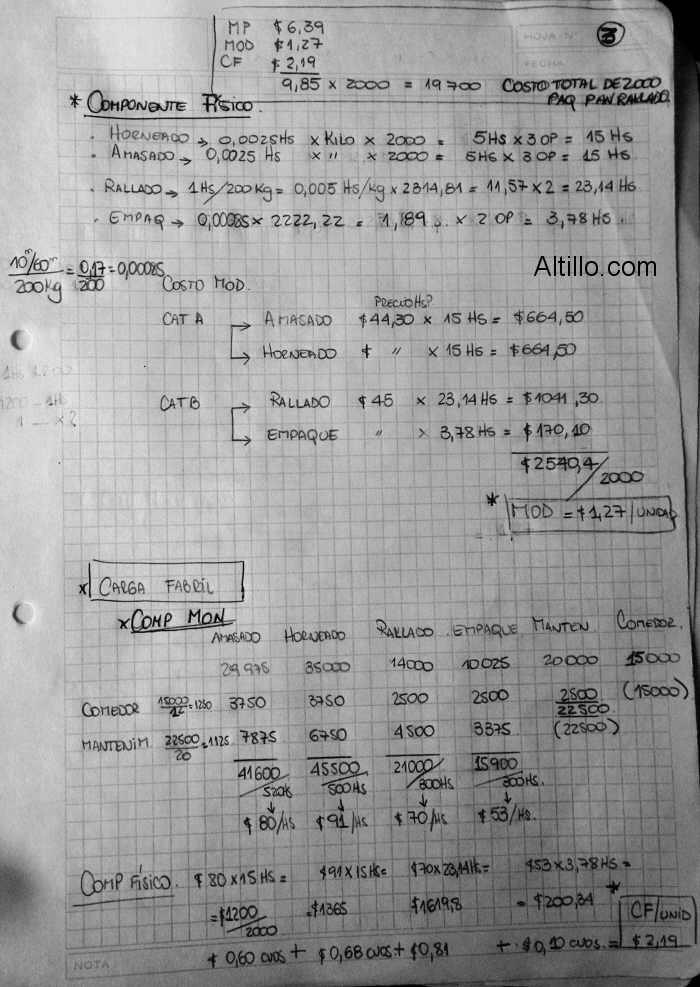 HOJA N°
3
FECHA
MP $6,39
MOD $1,27
CF $2,19
9,85 x 2000 = 19700 COSTO TOTAL DE 2000
PAQ PAN RALLADO
* COMPONENTE FÍSICO.
. HORNEADO → 0,0025HS x KILO x 2000 = 5HS x 3 OP = 15 HS
. AMASADO → 0,0025 HS x " x 2000 = 5HS x 3 OP = 15 HS
. RALLADO → 1HS/200Kg = 0,005 HS/Kg x 2314,81 = 11,57 x 2 = 23,14 HS
. EMPAQ → 0,00085 x 2222,22 = 1,189 . x 2 OP = 3,78 HS .
10m/60m / 200Kg = 0,17/200 = 0,00085
Altillo.com
COSTO MOD.
PRECIO HS?
CAT A → AMASADO $44,30 x 15 HS = $664,50
→ HORNEADO $ " x 15 HS = $664,50
CAT B → RALLADO $45 x 23,14 HS = $1041,30
→ EMPAQUE " x 3,78 HS = $170,10
$2540,4 / 2000
* MOD = $1,27/UNIDAD
x CARGA FABRIL
x COMP MON
AMASADO HORNEADO RALLADO . EMPAQUE MANTEN. COMEDOR.
29975 35000 14000 10025 20000 15000
COMEDOR 15000/12 = 1250 3750 3750 2500 2500 2500 (15000)
22500
MANTENIM. 22500/20 = 1125 7875 6750 4500 3375 (22500)
41600/520HS 45500/500HS 21000/300HS 15900/300HS.
$80/HS $91/HS $70/HS $53/HS.
COMP FÍSICO. $80 x 15 HS = $91 x 15 HS = $70 x 23,14 HS = $53 x 3,78 HS =
= $1200/2000 = $1365 $1619,8 = $200,34 *
CF/UNID
$2,19
NOTA
$0,60 CVOS + $0,68 CVOS + $0,81 + $0,10 CVOS. =